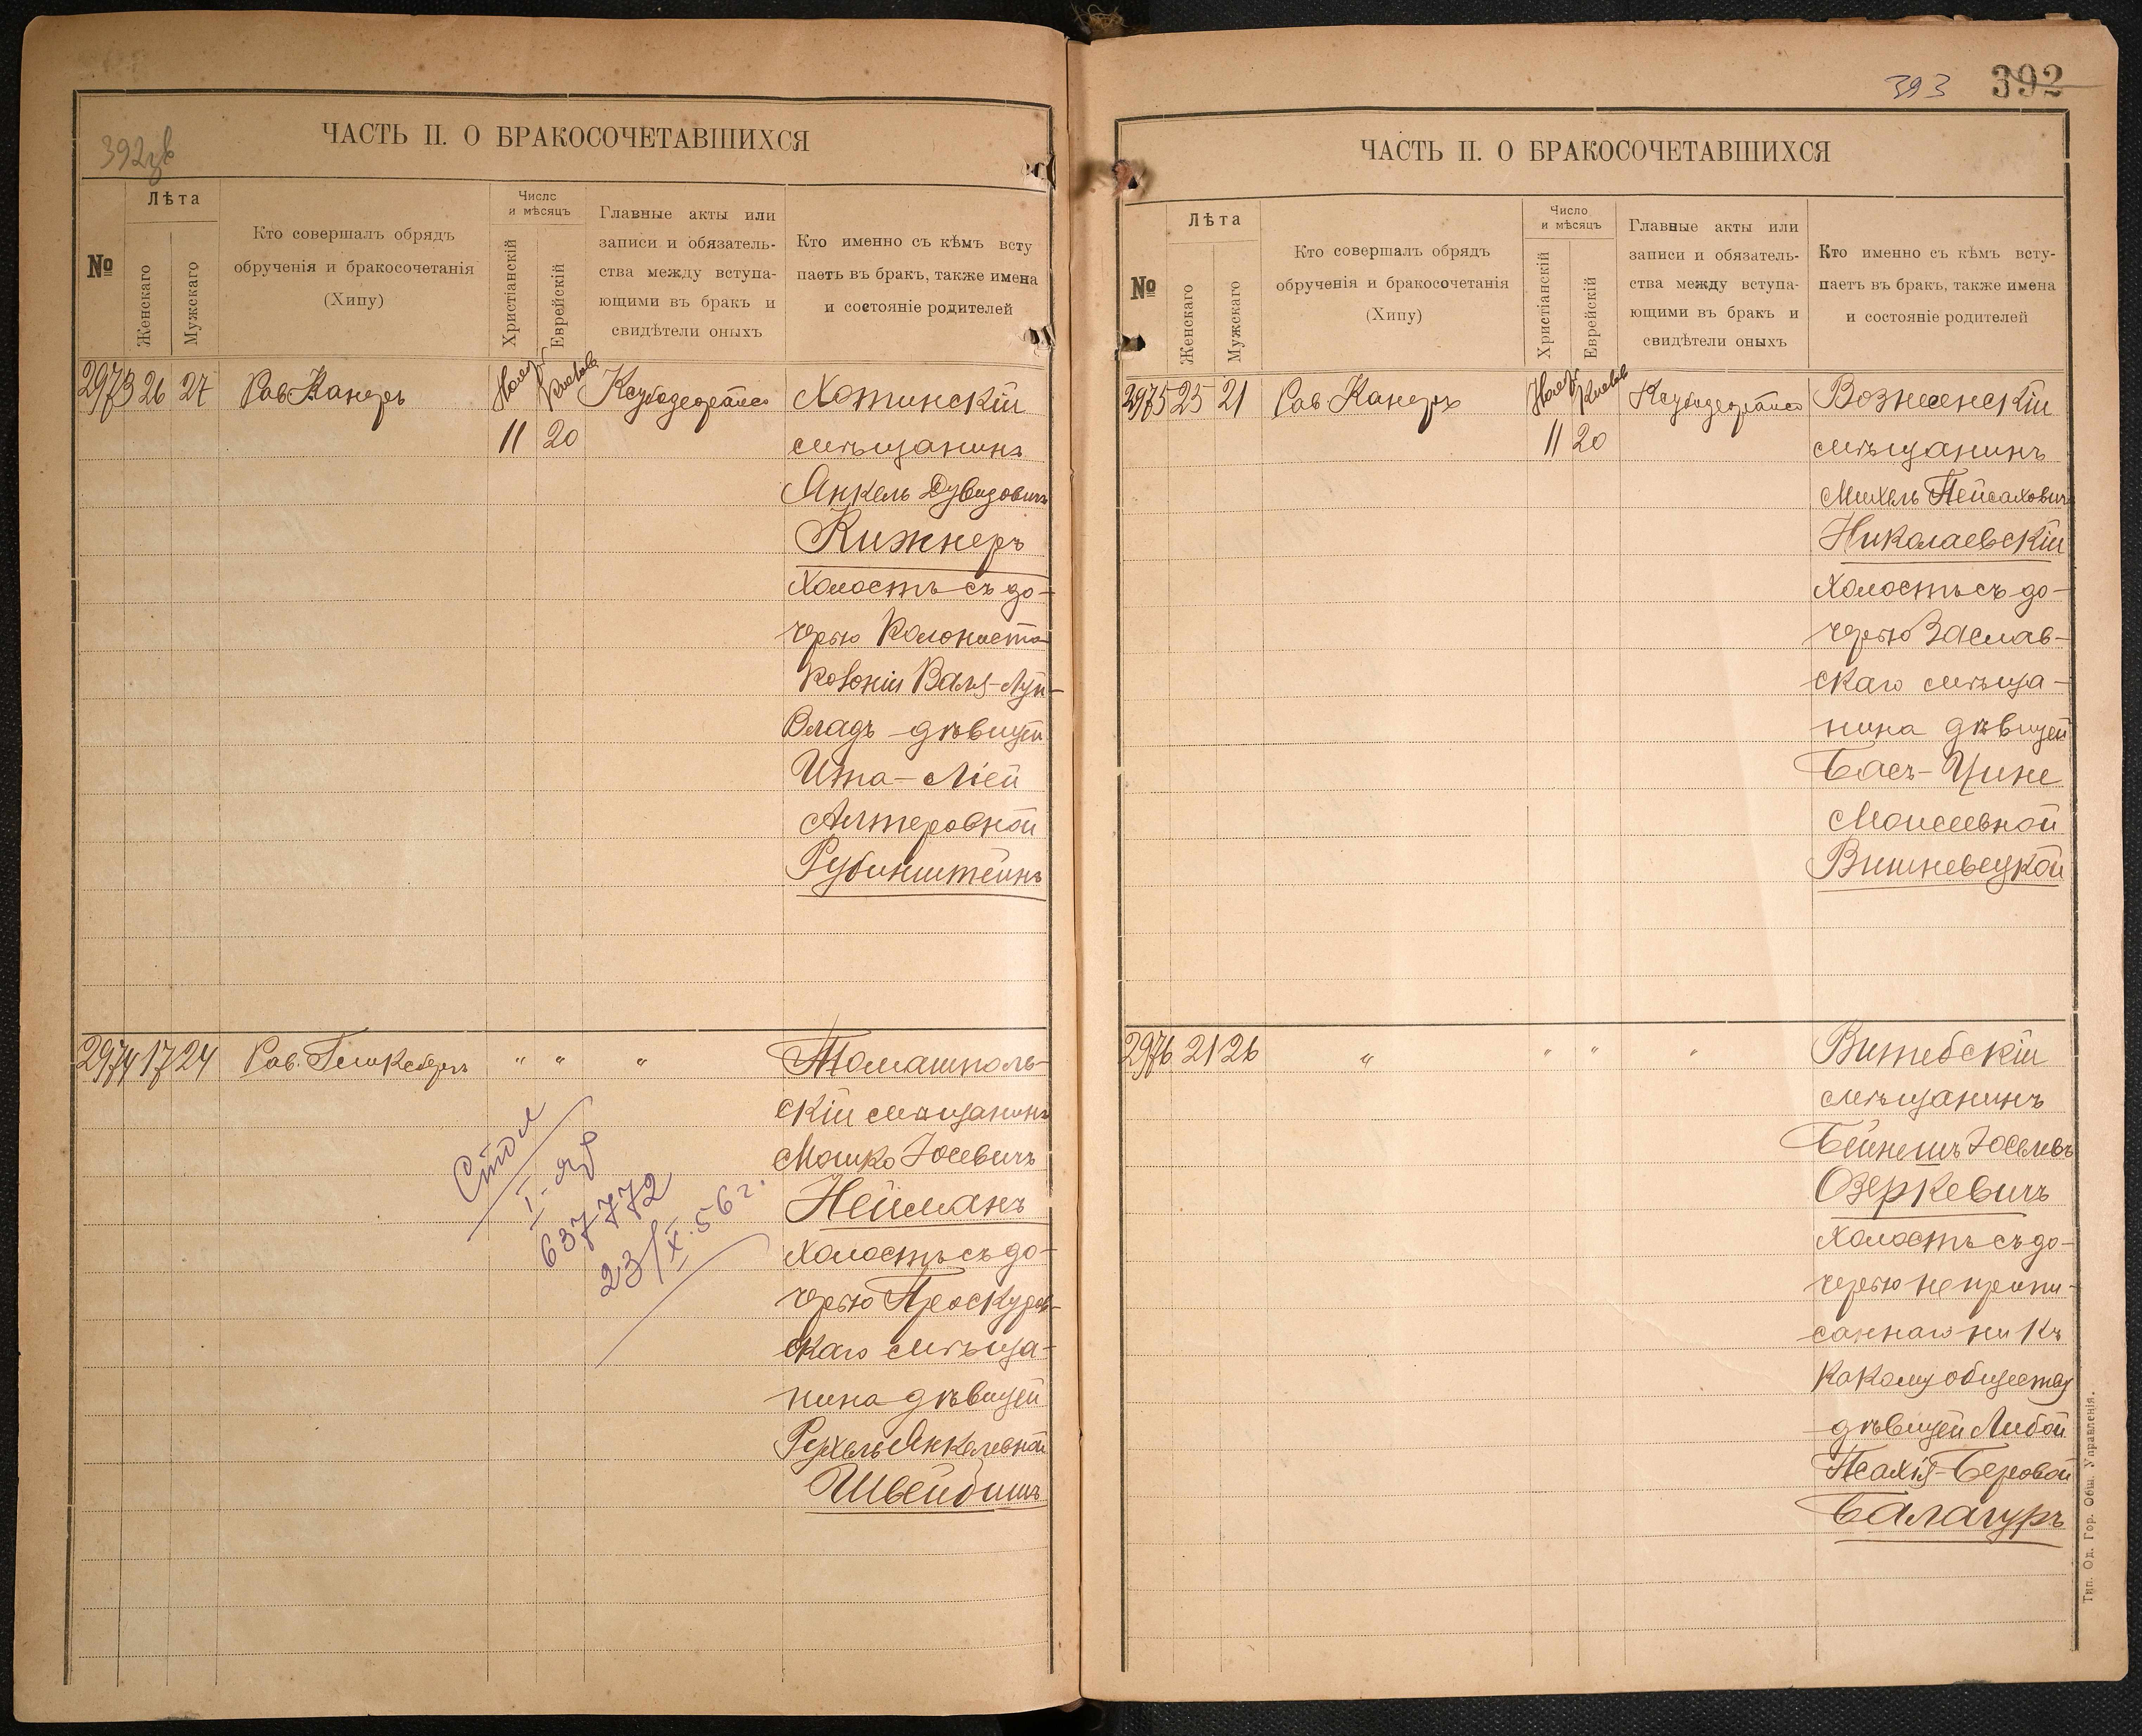 392об
ЧАСТЬ II. О БРАКОСОЧЕТАВШИХСЯ
№
Лѣта
Женскаго
Мужскаго
Кто совершалъ обрядъ
обрученія и бракосочетанія
(Хипу)
Число
и мѣсяцъ
Христіанскій
Еврейскій
Главные акты или
записи и обязатель-
ства между вступа-
ющими въ бракъ и
свидѣтели оныхъ
Кто именно съ кѣмъ всту
паетъ въ бракъ, также имена
и состояніе родителей
2973 26 27 Рав. Канеръ Нояб. Кислевъ
11 20
Хотинскій
мѣщанинъ
Янкель Дувидовичъ
Кижнеръ
холостъ съ до-
черью колониста
колоніи Валя-Луй-
Владъ дѣвицей
Ита-Ліей
Алтеровной
Рубинштейнъ
2974 17 24 Рав. " " "
Томашполь-
скій мѣщанинъ
Мошко Іосевичъ
Нейманъ
холостъ съ до-
черью Проскуров-
скаго мѣща-
нина дѣвицей
Рухель Янкелевной
Швейбишъ
Стол
I-
637772
23/X.56 г.
393 392
ЧАСТЬ II. О БРАКОСОЧЕТАВШИХСЯ
№
Лѣта
Женскаго
Мужскаго
Кто совершалъ обрядъ
обрученія и бракосочетанія
(Хипу)
Число
и мѣсяцъ
Христіанскій
Еврейскій
Главные акты или
записи и обязатель-
ства между вступа-
ющими въ бракъ и
свидѣтели оныхъ
Кто именно съ кѣмъ всту-
паетъ въ бракъ, также имена
и состояніе родителей
2975 25 21 Рав. Канеръ Нояб. Кислевъ
11 20
Вознесенскій
мѣщанинъ
Михель Пейсаховичъ
Николаевскій
холостъ съ до-
черью Заслав-
скаго мѣща-
нина дѣвицей
Бася-Цине
Моисеевной
Вишневецкой
2976 21 26 " " " "
Витебскій
мѣщанинъ
Бейнешъ Іоселевъ
Озеркевичъ
холостъ съ до-
черью не припи-
саннаго ни къ
какому обществу
дѣвицей Либой
Псахія-Беровой
Балагуръ
Тип. Од. Гор. Общ. Управленія.